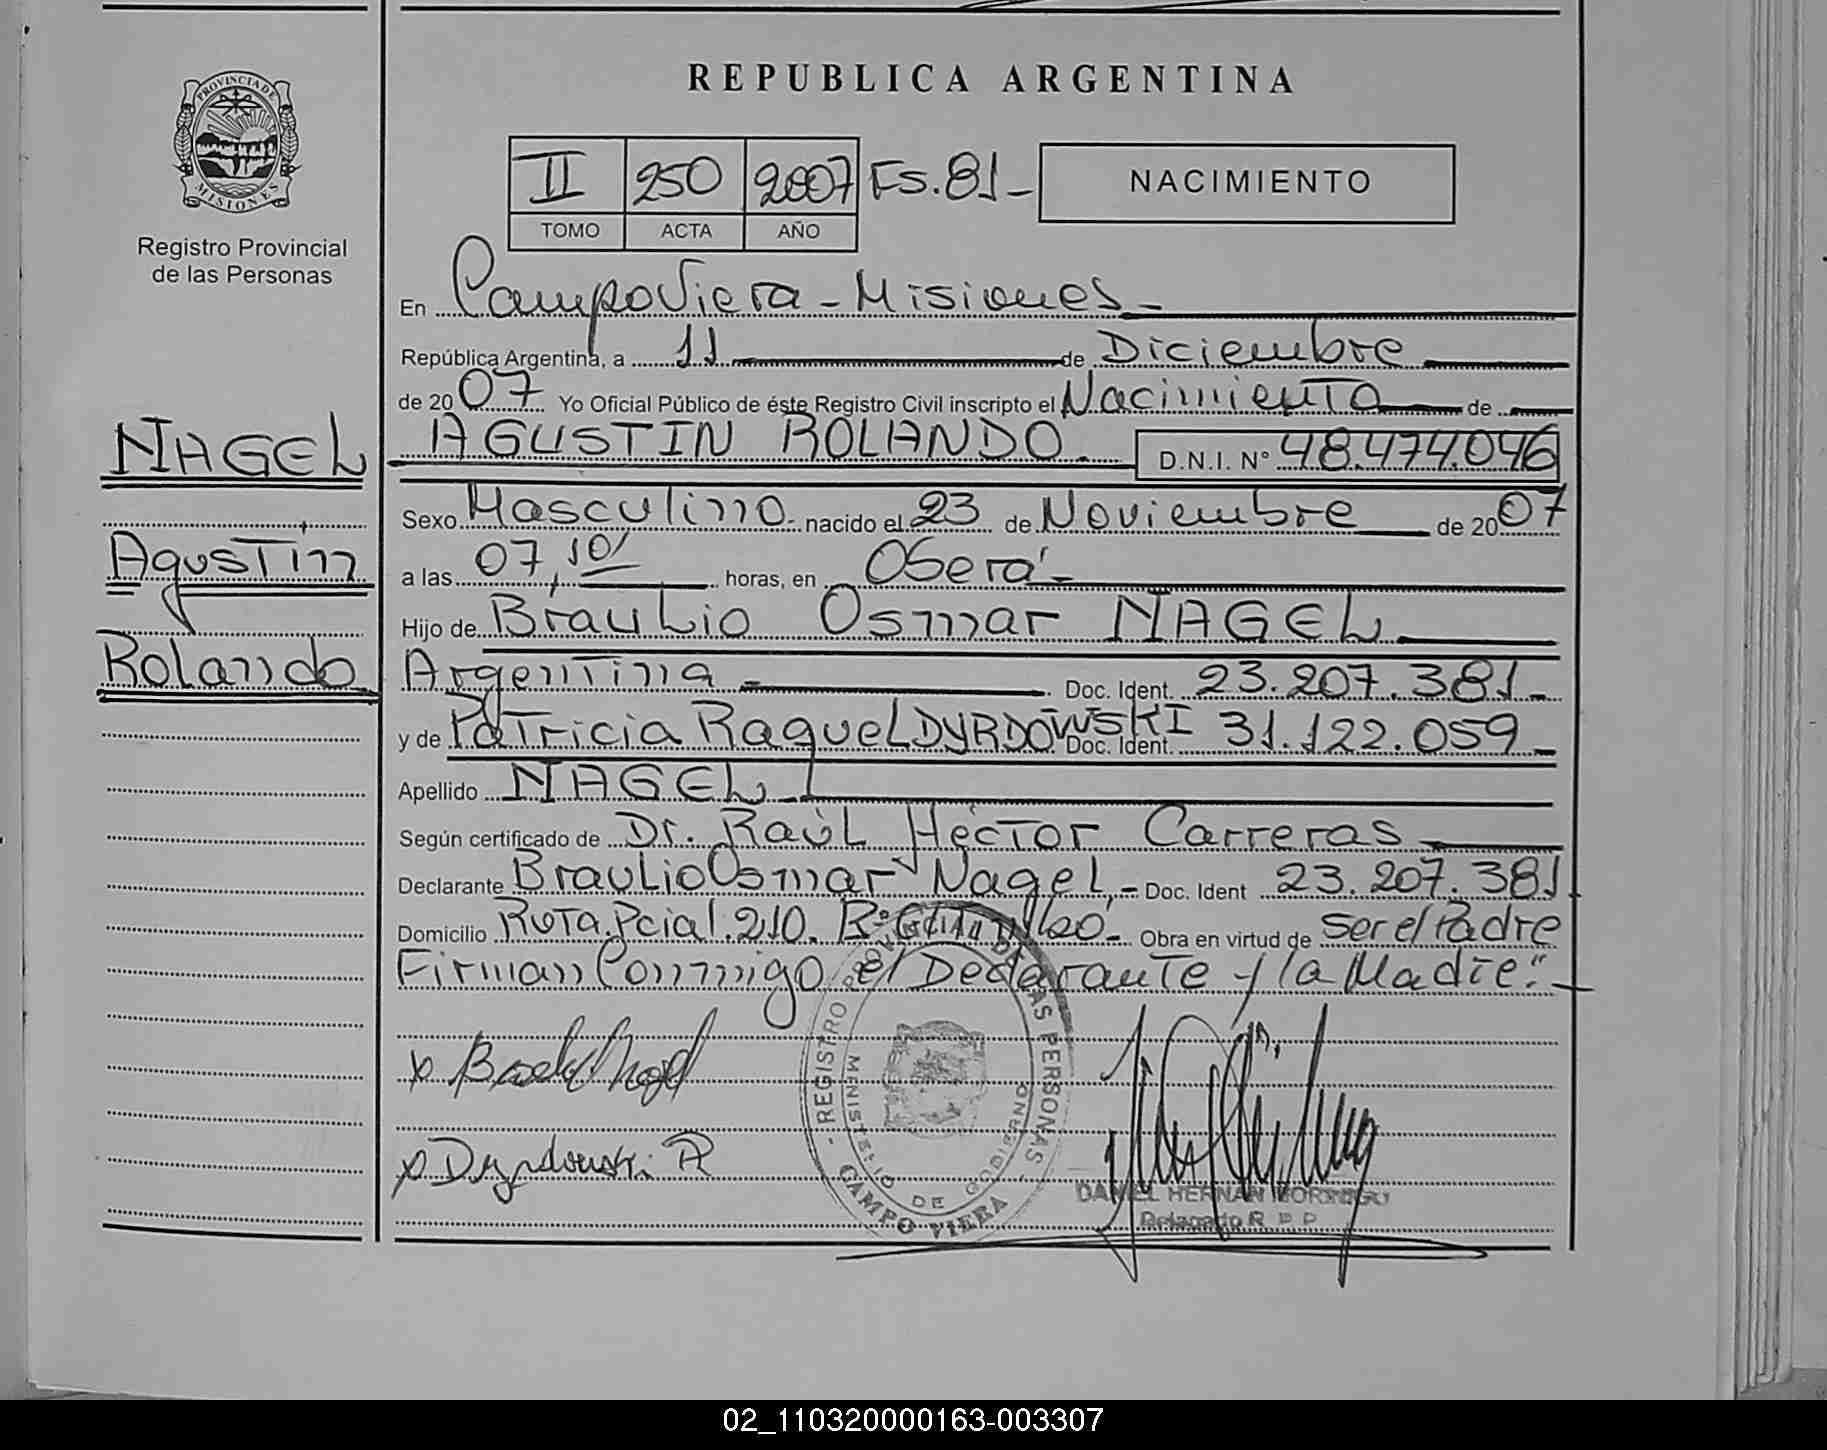 REPUBLICA ARGENTINA
PROVINCIA DE MISIONES
Registro Provincial
de las Personas
II 250 2007 Fs. 81-
TOMO ACTA AÑO
NACIMIENTO
NAGEL
Agustín
Rolando
En Campo Viera - Misiones -
República Argentina, a 11 de Diciembre
de 2007 Yo Oficial Público de éste Registro Civil inscripto el Nacimiento de
AGUSTIN ROLANDO. D.N.I. Nº 48.474.046
Sexo Masculino - nacido el 23 de Noviembre de 2007
a las 07,10' horas, en Oberá -
Hijo de Braulio Osmar NAGEL
Argentina - Doc. Ident. 23.207.381 -
y de Patricia Raquel DYRDOWSKI Doc. Ident. 31.122.059 -
Apellido NAGEL
Según certificado de Dr. Raúl Héctor Carreras
Declarante Braulio Osmar Nagel, - Doc. Ident 23.207.381
Domicilio Ruta. Pcial. 210. Bº Obra en virtud de ser el Padre
Firman Conmigo el Declarante y la Madre."-
x
x Dyrdowski. P
- REGISTRO PROVINCIAL DE LAS PERSONAS -
MINISTERIO DE GOBIERNO
CAMPO VIERA
DANIEL HERNAN
Delegado R. P. P.
02_110320000163-003307